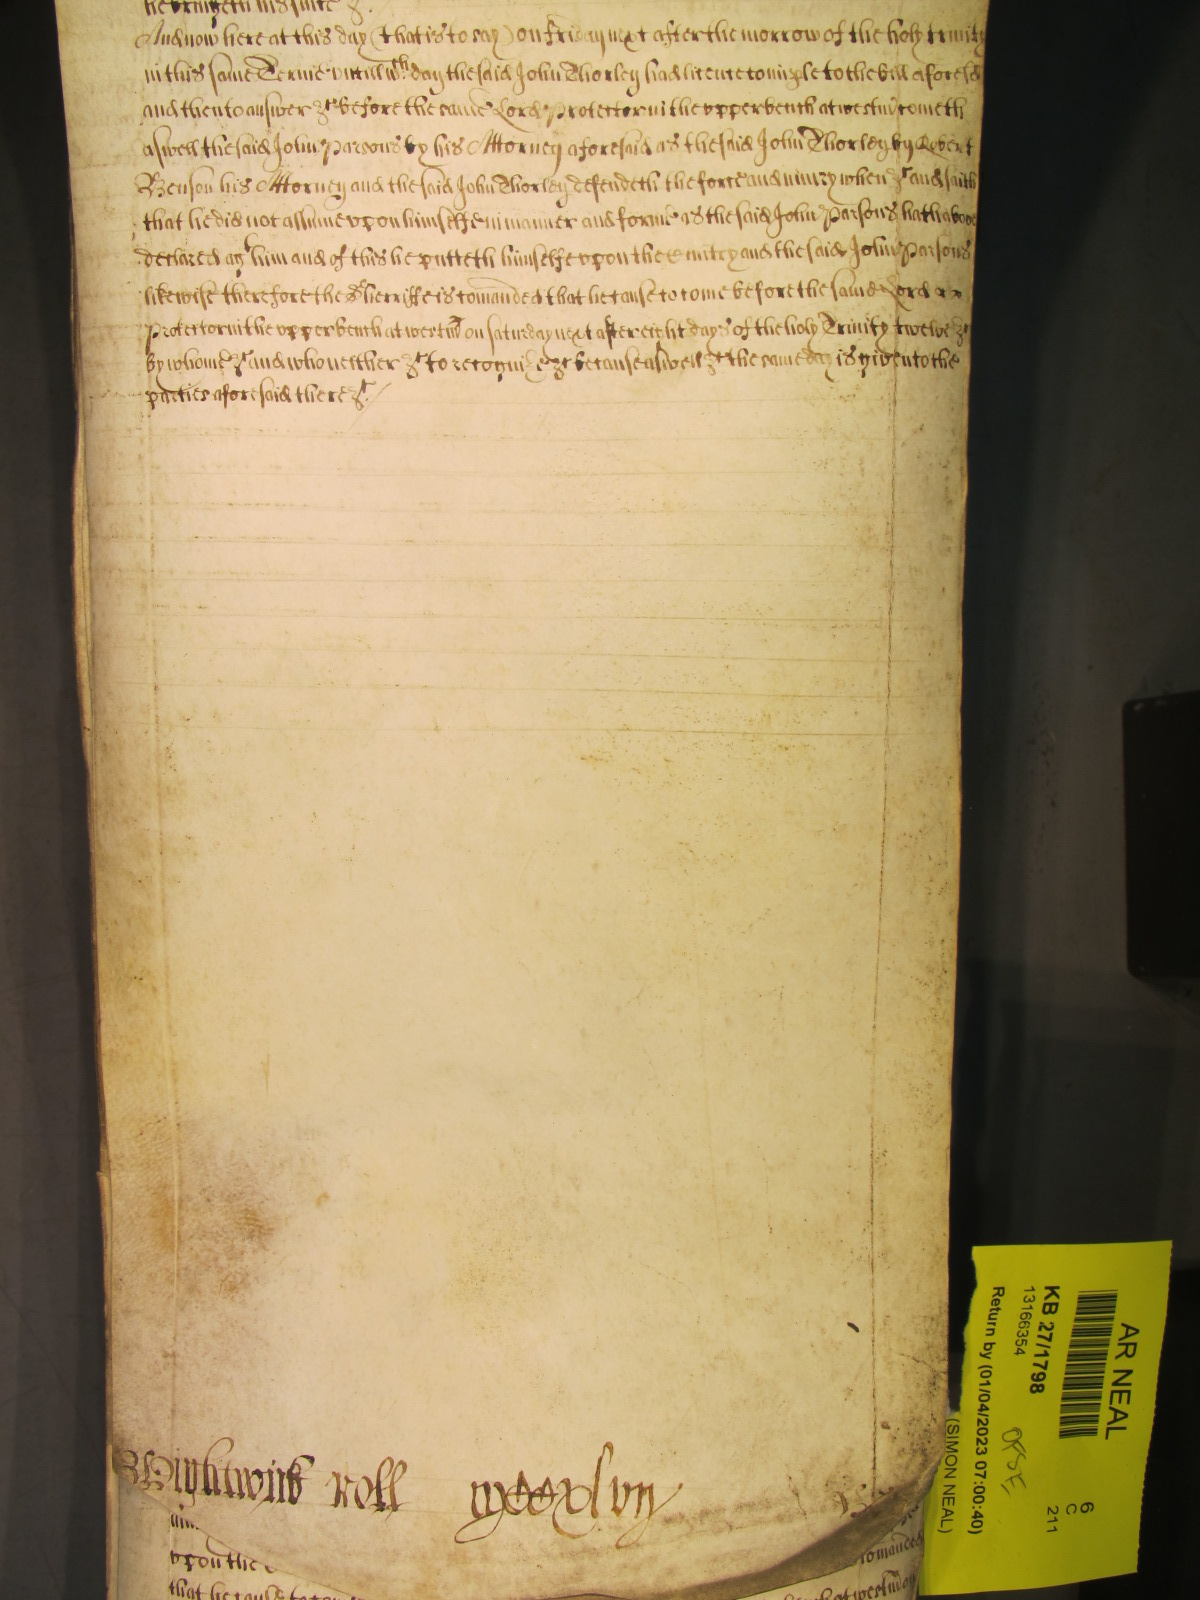 he bringeth his suite &c.
And now here at this day (that is to say) on friday next after the morrow of the holy trinity
in this same Terme untill wch day the said John Thorley had licence to imple to the bill aforesd
and then to answer &c before the same Lord Protector in the upper bench at westm cometh
aswell the said John Parsons by his Attorney aforesaid as the said John Thorley by Robert
Benson his Attorney and the said John Thorley defendeth the force and iniury when &c and saith
that he did not assume upon himselfe in manner and forme as the said John Parsons hath above
declared agt him and of this he putteth himselfe upon the Cuntry and the said John Parsons
likewise therefore the Sherriffe is comanded that he cause to come before the said Lord
Protector in the upper bench at westm on saturday next after eight days of the holy Trinity twelve &c
by whome &c and who neither &c to recognize &c because aswell &c the same day is given to the
parties aforesaid there &c
Wightwick Roll mccxlvii
upon the
comanded
that he cause to come
at westm on
AR NEAL
KB 27/1798
13166354
Return by (01/04/2023 07:00:40)
(SIMON NEAL)
6
C
211